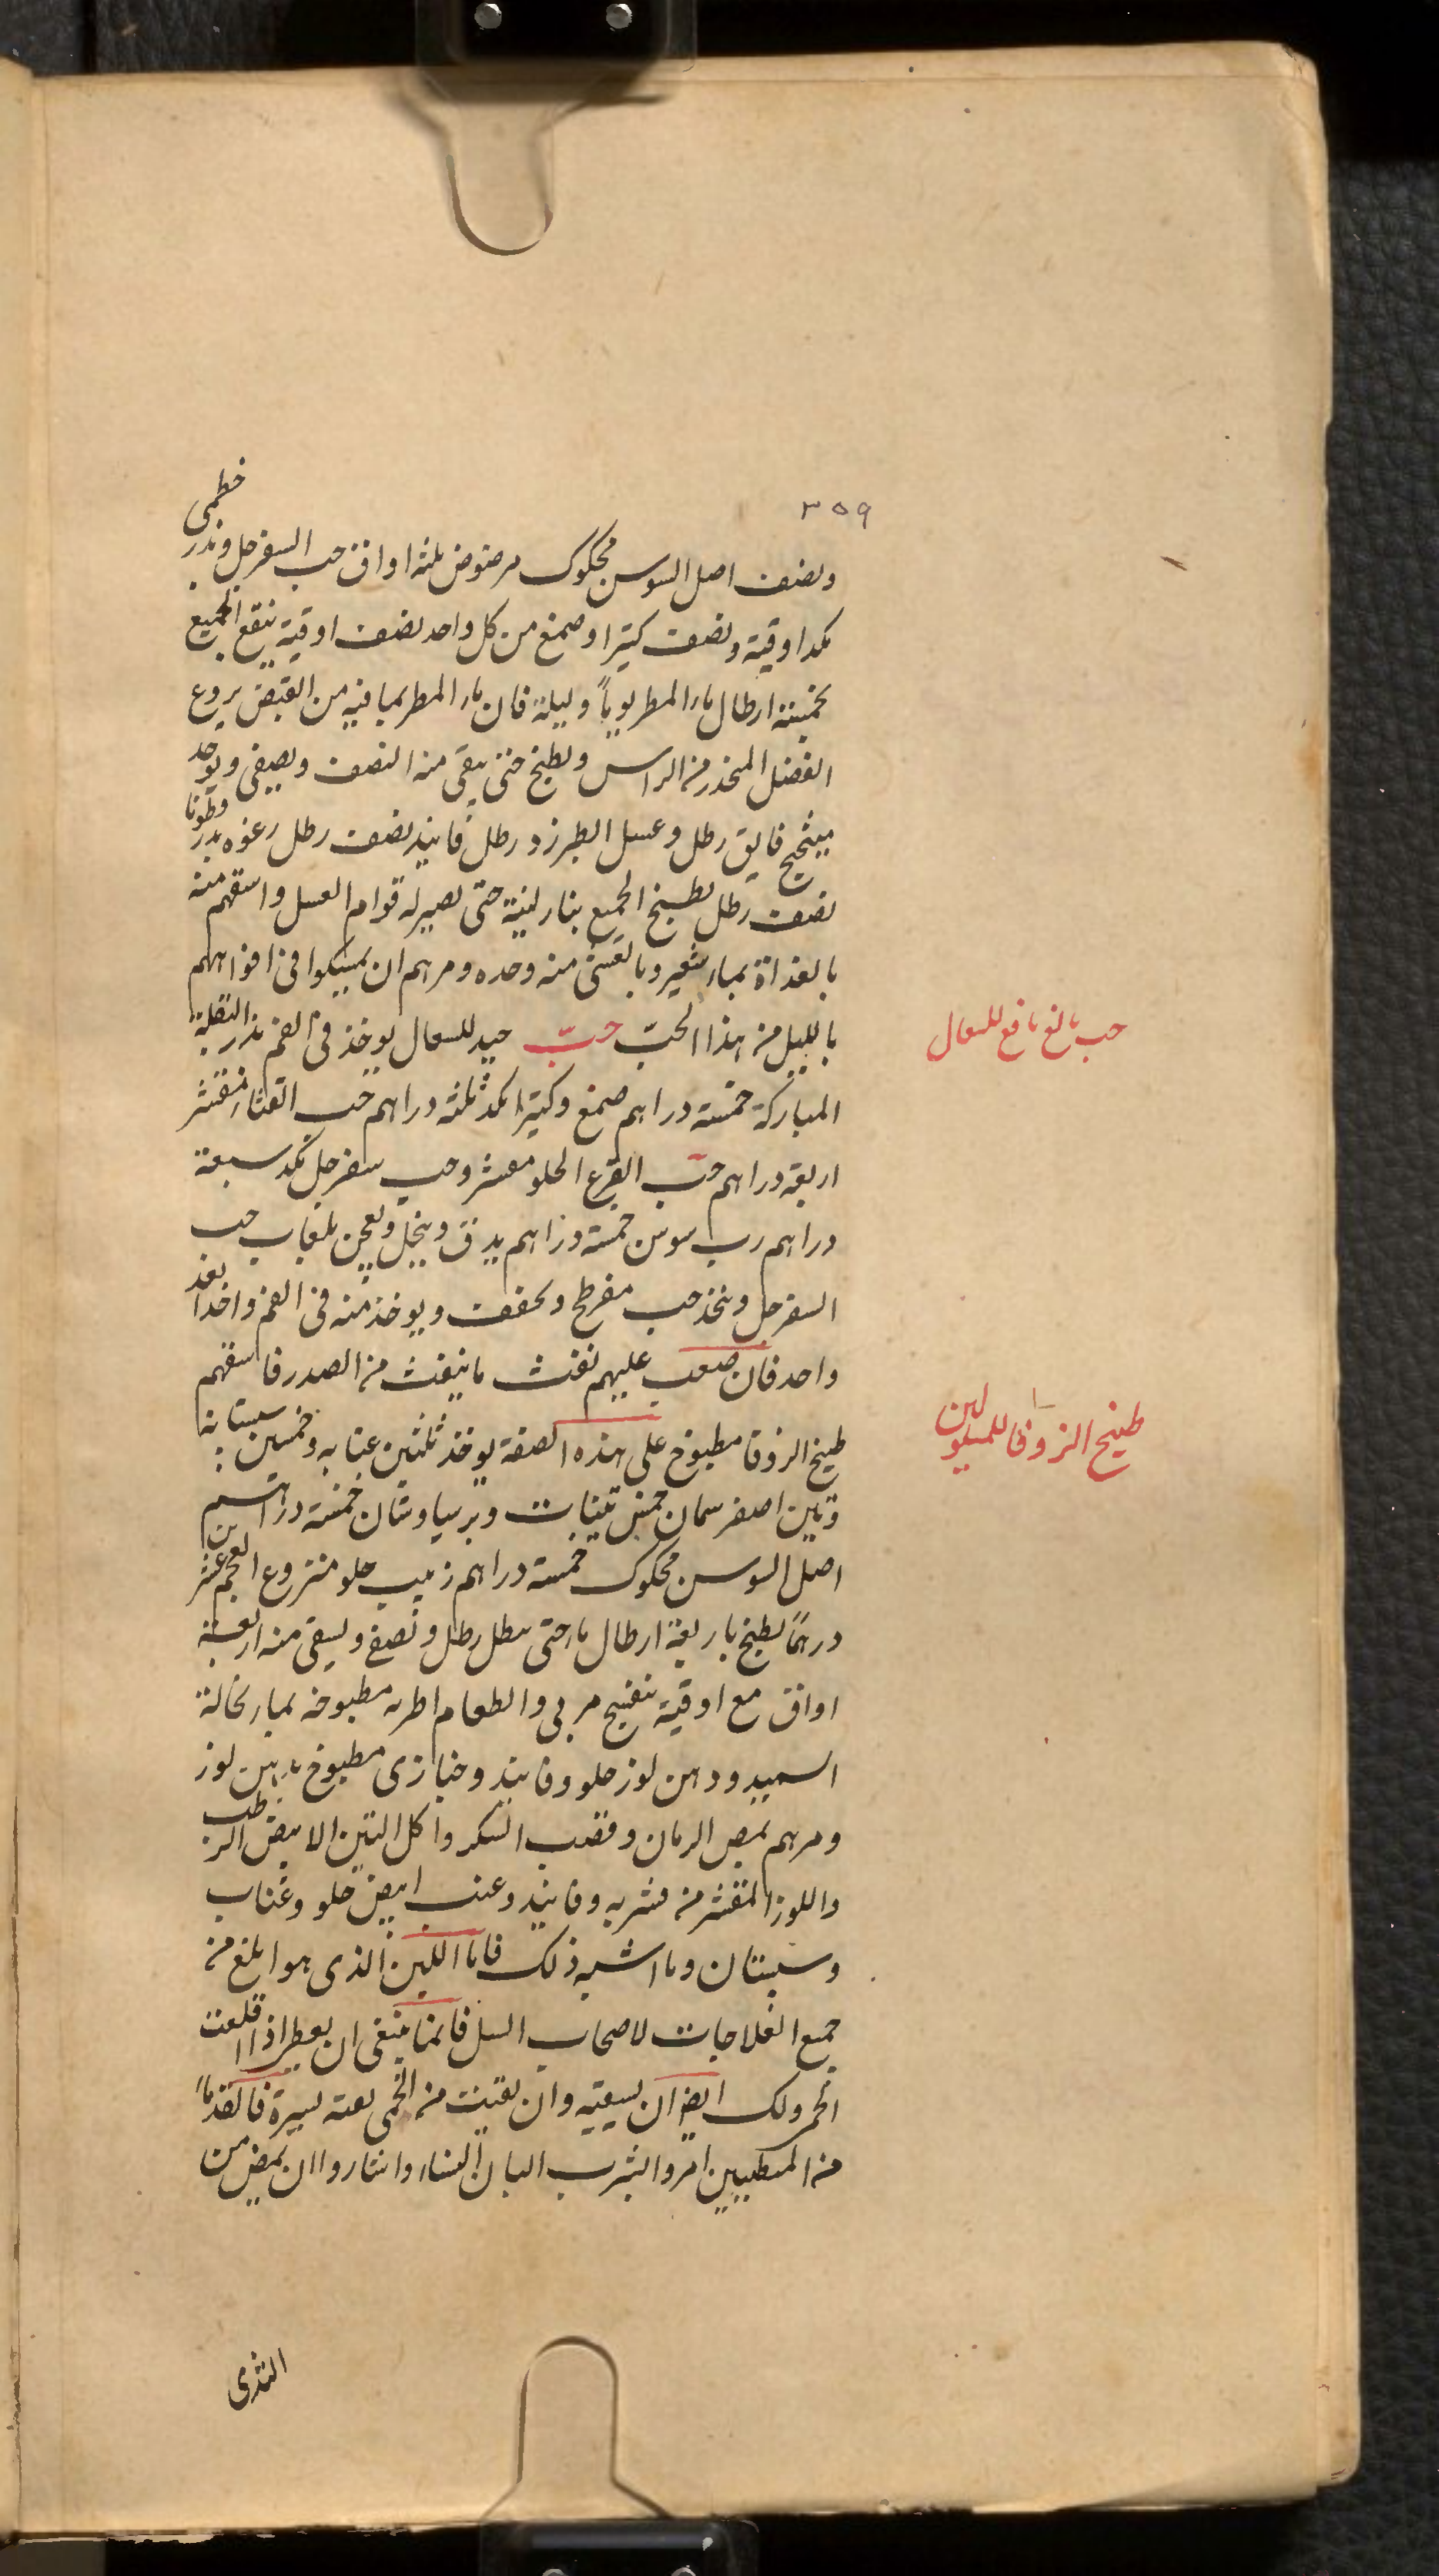 ٣٥٩
ونصف اصل السوسن محكوك مرضوض ثلثة اواق حب السفرجل وبذر خطمى
بكد اوقية ونصف كثيرا وصمغ من كل واحد نصف اوقية ينقع الجميع
بخمسة ارطال ماء المطر يوماً وليلة فان ماء المطر بما فيه من القبض يروع
الفضل المنحدر من الراس ويطبخ حتى يبقى منه النصف ويصفى ويوخد
ميبختج فايق رطل وعسل الطبرزد رطل فانيد نصف رطل رغوه بزر قطونا
نصف رطل يطبخ الجميع بنار لينة حتى يصير له قوام العسل واسقهم منه
بالغداة بماء شعير وبالعشى منه وحده ومرهم ان يمسكوا فى افواههم
بالليل من هذا الحبّ حبّ جيد للسعال يوخذ فى الفم بذر البقلة
المباركة خمسة دراهم صمغ وكثيرا بكد ثلثة دراهم حب القثاء مقشر
اربعة دراهم حبّ القرع الحلو مقشر وحب سفرجل بكد سبعة
دراهم رب سوس خمسة دراهم يدق وينخل ويعجن بلعاب حب
السفرجل ويتخذ حب مفرطح ويجفف ويوخذ منه فى الفم واحدا بعد
واحد فان صعب عليهم نفث ما ينفث من الصدر فاسقهم
طبيخ الزوفا مطبوخ على هذه الصفة يوخذ ثلثين عنابه وخمسين سبستانه
وتين اصفر سمان خمس تينات وبرسياوشان خمسة دراهم
اصل السوسن محكوك خمسة دراهم زبيب حلو منزوع العجم عشرين
درهماً يطبخ باربعة ارطال ماء حتى يبطل رطل ونصف ويسقى منه اربعة
اواق مع اوقية بنفسج مربى والطعام اطريه مطبوخه بماء نخالة
السميد ودهن لوز حلو وفانيد وخبازى مطبوخ بدهن لوز
ومرهم بمص الرمان وقصب السكر واكل التين الابيض الرطب
واللوز المقشر من قشريه وفانيد وعنب ابيض حلو وعناب
وسبستان وما اشبه ذلك فاما اللبن الذى هو ابلغ من
جميع العلاجات لاصحاب السل فانما ينبغى ان يعطى اذا اقلعت
الحمى ولك ايضا ان يسقيه وان بقيت من الحمى بقية يسيرة فالقدماء
من المتطببين امروا بشرب البان النساء واشاروا ان يمص من
الثدى
حب بالغ نافع للسعال
طبيخ الزوفا للمسلولين